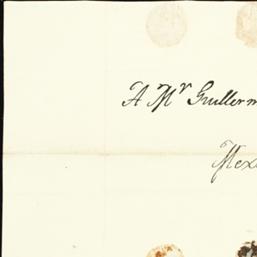 A Mr Guillerm
Mex